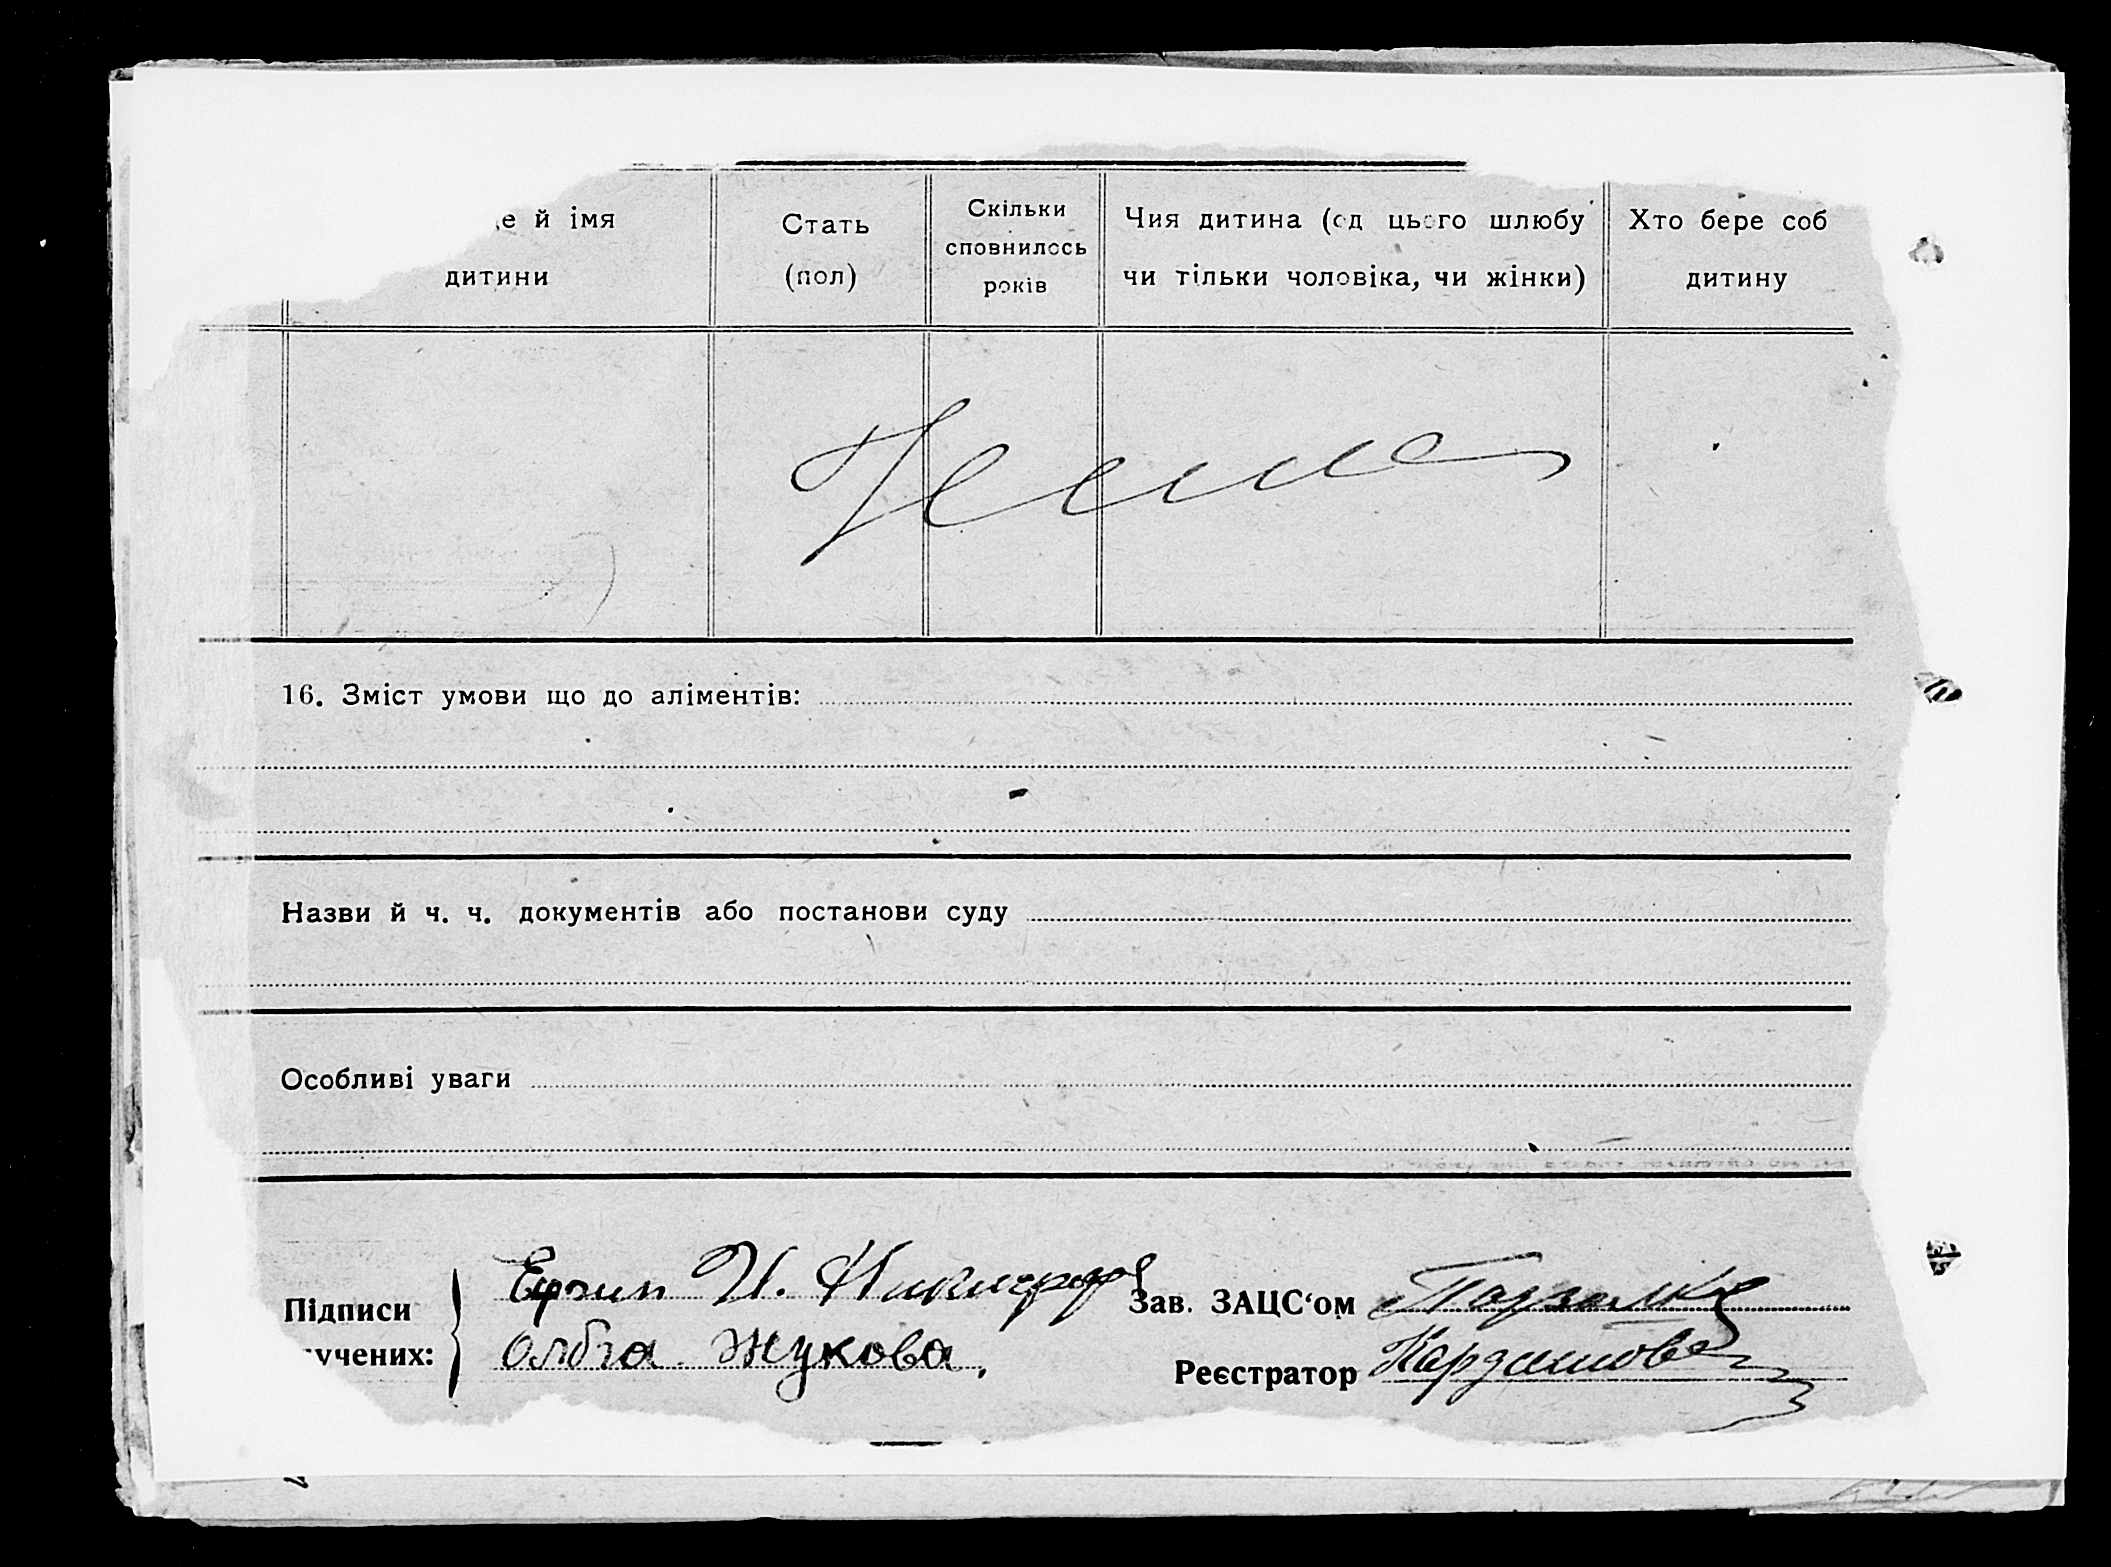 е й імя
дитини
Стать
(пол)
Скільки
сповнилось
років
Чия дитина (од цього шлюбу
чи тільки чоловіка, чи жінки)
Хто бере соб
дитину
Нема
16. Зміст умови що до аліментів:
Назви й ч. ч. документів або постанови суду
Особливі уваги
Підписи
лучених:
Ефим И.
Ольга Жукова.
Зав. ЗАЦС‘ом
Реєстратор